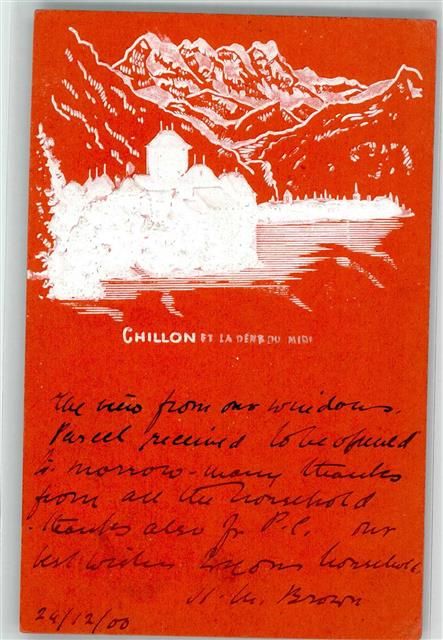 CHILLON ET LA DENT DU MIDI
The view from our windows.
Parcel received to be opened
to-morrow - many thanks
from all the household
- thanks also for P.C. our
best wishes household.
Brown
/12/00